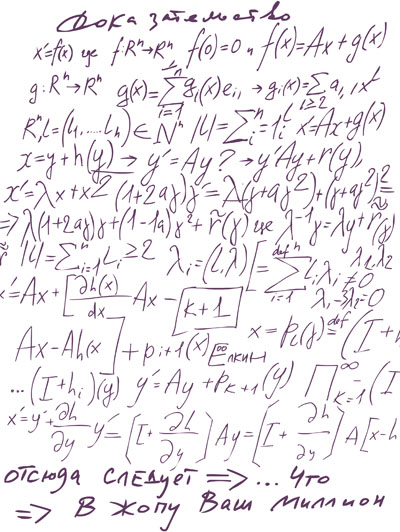 Доказательство
x'=f(x) где f:Rⁿ→Rⁿ f(0)=0 и f(x)=Ax+g(x)
g:Rⁿ→Rⁿ g(x)=∑ⁿᵢ₌₁gᵢ(x)eᵢ, → gᵢ(x)=∑
Rⁿ,L=(L₁,....Lₙ)∈Nⁿ |L|=∑ⁿᵢ₌₁Lᵢ x'=Ax+g(x)
x=y+h(y) → y'=Ay? → y'Ay+r(y),
x'=λx+x² (1+2ay)y'=λ(y+ay²)+(y+ay²)²=
=>λ(1+2ay)y+(1-λa)y²+r̃(y) где λ⁻¹y=λy+r̃(y)
|L|=∑ⁿᵢ₌₁Lᵢ≥2 λᵢ=(L,λ) [=def ∑ⁿᵢ₌₁Lᵢλᵢ≠0 λ₁λ₂
λ₁-3λ₂=0
x'=Ax+[∂h(x)/dx Ax- k+1
Ax-Ah(x] +pᵢ+1(x) Ёлкин x=Pₖ(y)=def(I+
...(I+hᵢ)(y) y'=Ay+Pₖ₊₁(y) ∏^∞ₖ₌₁(I
x'=y'+∂h/∂y y'=[I+∂h/∂y]Ay=[I+∂h/∂y]A[x-h
отсюда следует => ... что
=> В жопу Ваш миллион